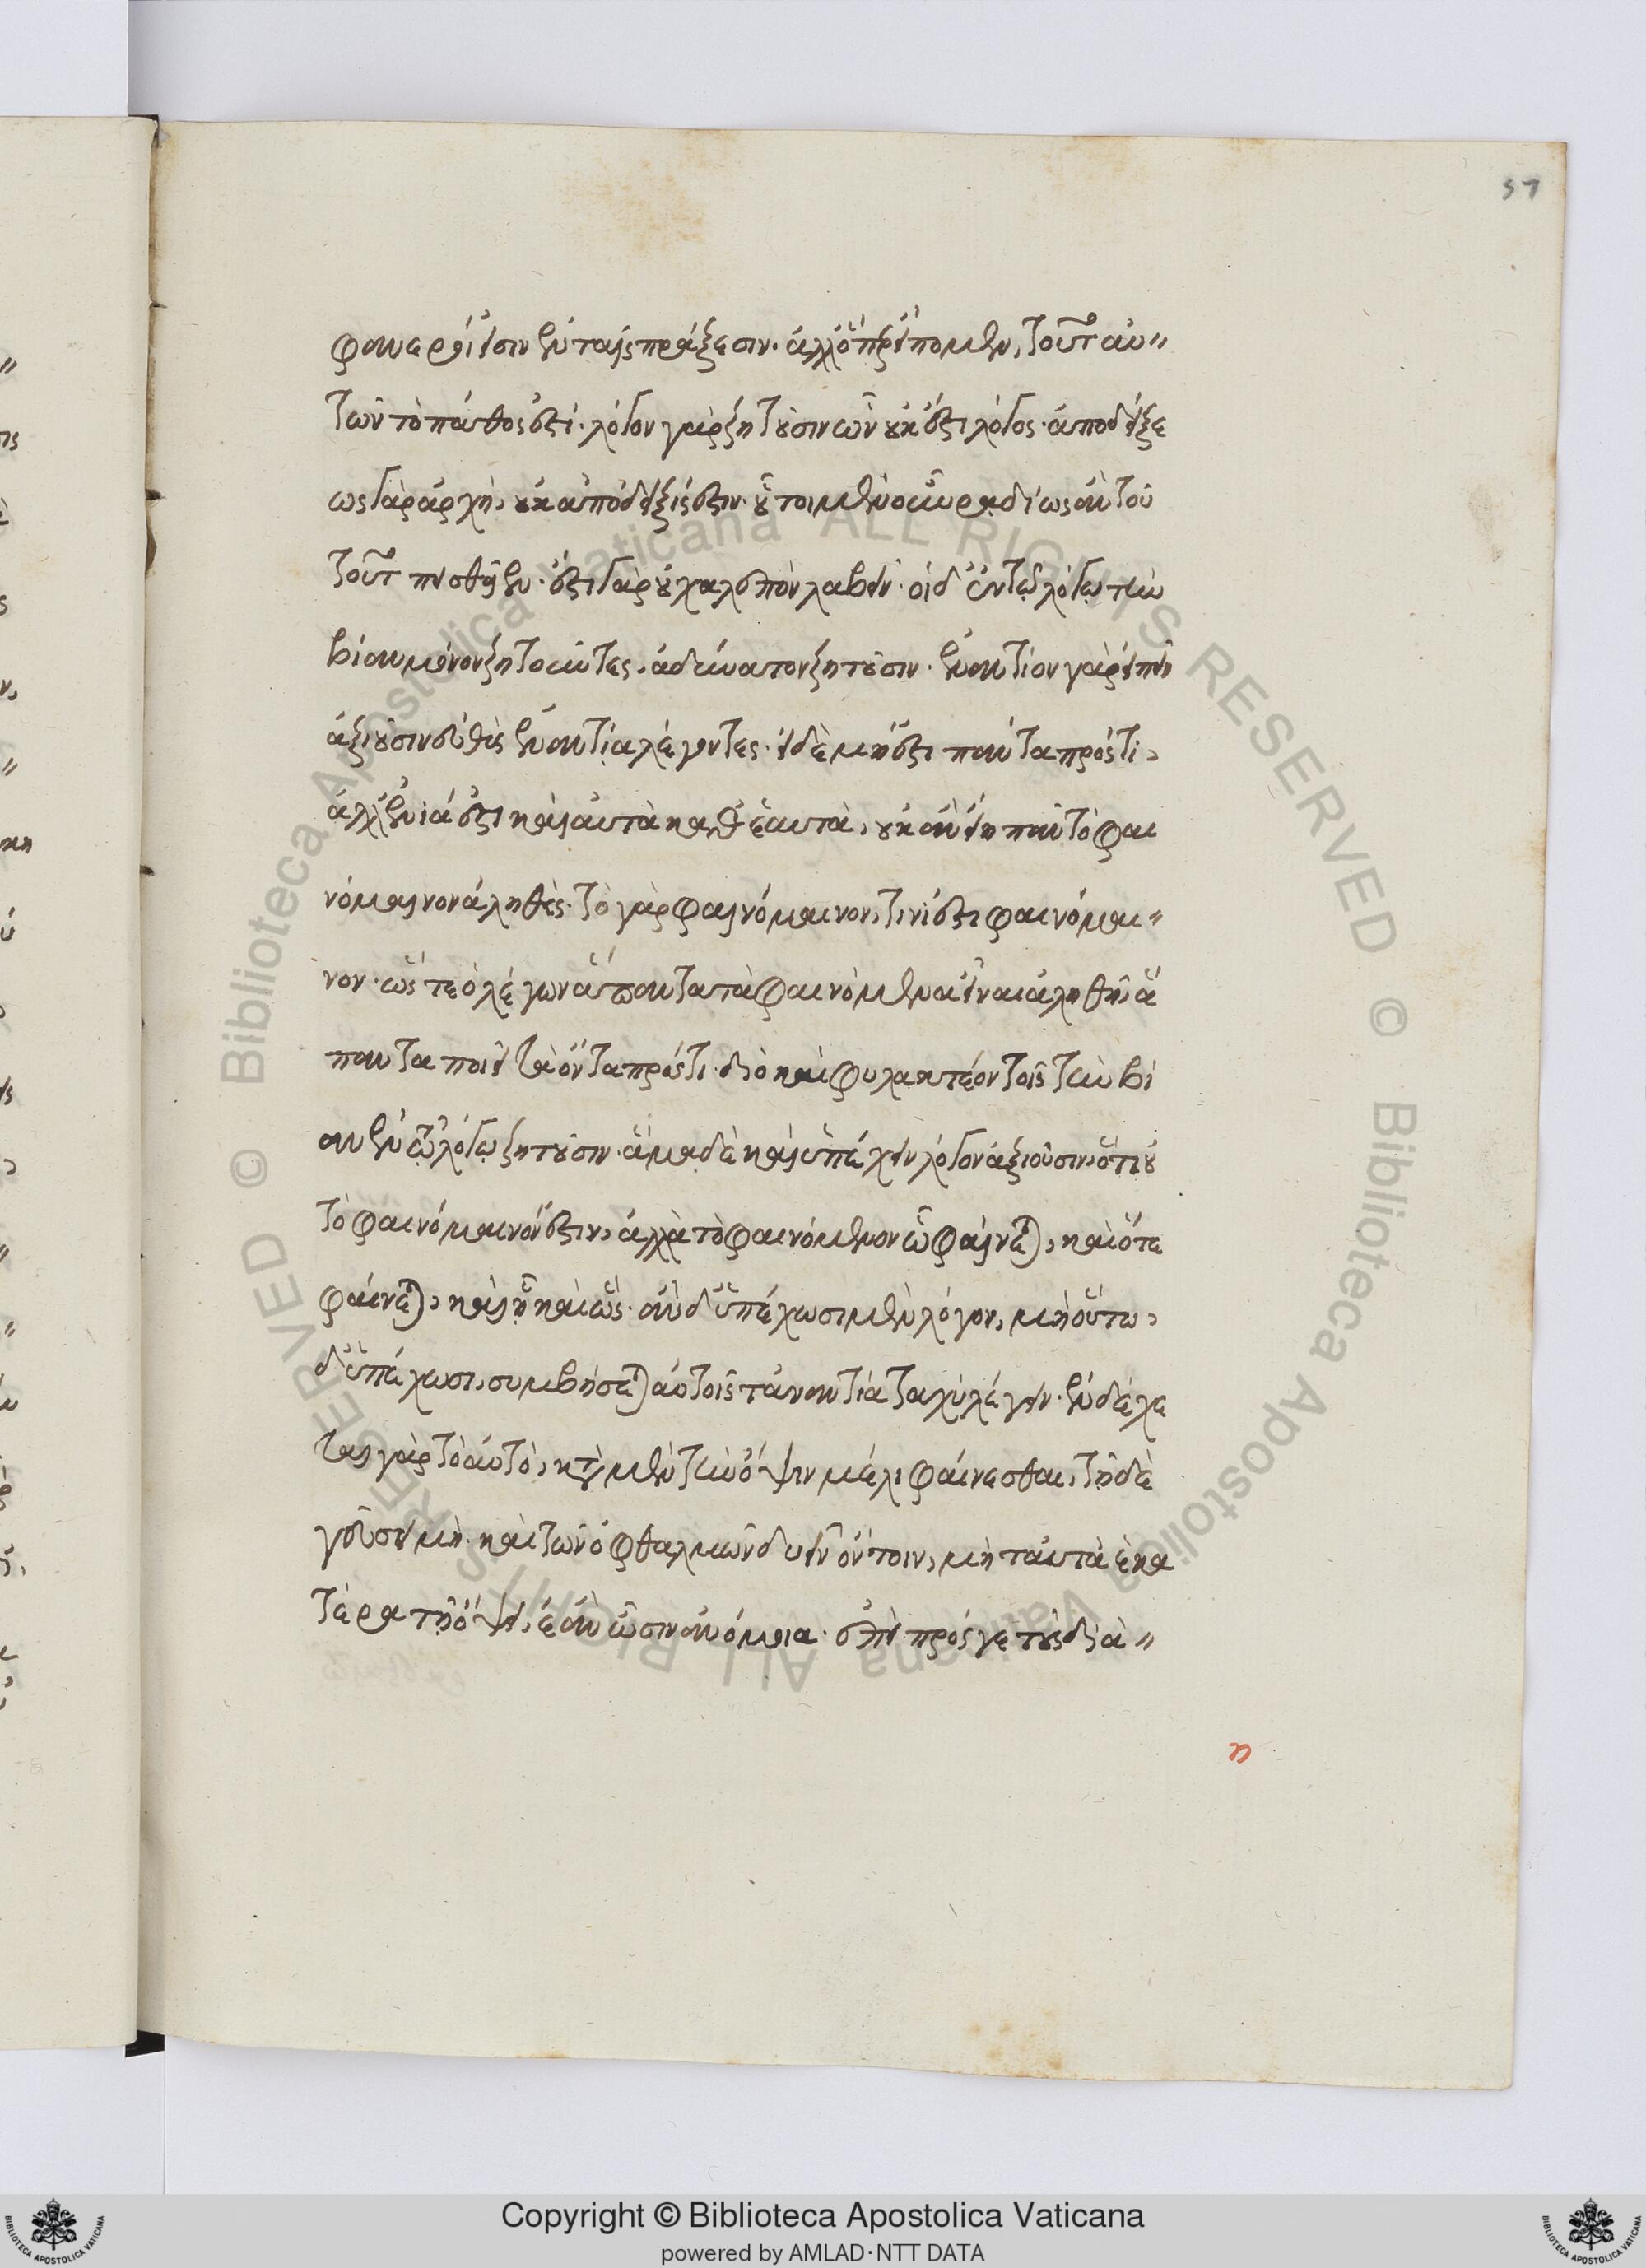 57
φανεροί εἰσιν ἐν ταῖς πράξεσιν· ἀλλ' ὅπερ εἴπομεν, τοῦτ' αὐ"
τῶν τὸ πάθος ἐστί· λόγον γὰρ ζητοῦσιν ὧν οὐκ ἔστι λόγος· ἀποδείξε
ως γὰρ ἀρχὴ, οὐκ ἀπόδειξίς ἐστιν· οὗτοι μὲν οὖν ῥαδίως ἂν τοῦ
τοῦτ πεισθεῖεν· ἔστι γὰρ οὐ χαλεπὸν λαβεῖν· οἱ δ' ἐν τῷ λόγῳ τὴν
βίαν μόνον ζητοῦντες, ἀδύνατον ζητοῦσιν· ἐναντίον γὰρ εἰπεῖν
ἀξιοῦσιν εὐθὺς ἐναντία λέγοντες· εἰ δὲ μὴ ἔστι πάντα πρός τι,
ἀλλ' ἔνιά ἐστι καὶ αὐτὰ καθ' ἑαυτὰ, οὐκ ἂν εἴη πᾶν τὸ φαι
νόμαινον ἀληθές· τὸ γὰρ φαινόμαινον, τινί ἐστι φαινόμαι"
νον· ὥστε ὁ λέγων ἅπαντα τὰ φαινόμενα εἶναι ἀληθῆ, ἅ
παντα ποιεῖ τὰ ὄντα πρός τι· διὸ καὶ φυλακτέον τοῖς τὴν βί
αν ἐν τῷ λόγῳ ζητοῦσιν· ἅμα δὲ καὶ ὑπέχειν λόγον ἀξιοῦσιν, ὅτι οὐ
τὸ φαινόμαινόν ἐστιν, ἀλλὰ τὸ φαινόμενον ᾧ φαίνεται, καὶ ὅτε
φαίνεται, καὶ ᾗ καὶ ὥς· ἂν δ' ὑπέχωσι μὲν λόγον, μὴ οὕτω,
δ' ὑπέχωσι, συμβήσεται αὐτοῖς τἀναντία ταχὺ λέγειν· ἐνδέχε
ται γὰρ τὸ αὐτὸ, κατὰ μὲν τὴν ὄψιν μέλι φαίνεσθαι, τῇ δὲ
γεύσει μή· καὶ τῶν ὀφθαλμῶν δυεῖν ὄντοιν, μὴ ταὐτὰ ἑκα
τέρα τῇ ὄψει, ἐὰν ὦσιν ἀνόμοια· ἐπεὶ πρός γε τοὺς διὰ"
α
Copyright © Biblioteca Apostolica Vaticana
powered by AMLAD·NTT DATA